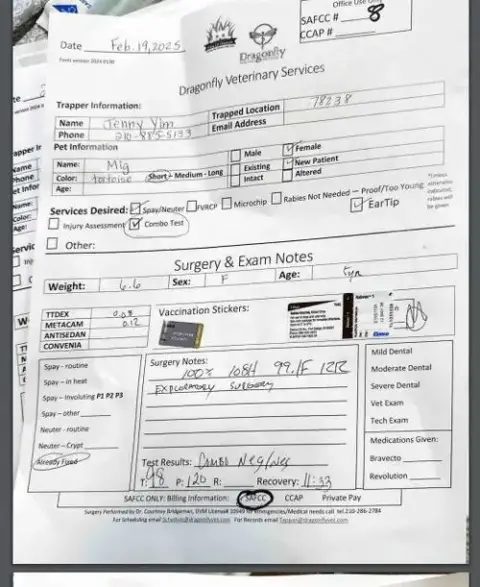 Office Use Only
SAFCC # 8
CCAP #
Date Feb. 19, 2025
Dragonfly
Dragonfly Veterinary Services
Trapper Information:
Name Jenny Yim Trapped Location 78238
Phone 210-885-5133 Email Address
Pet Information
Name: Mig Male Female
Color: tortoise Short - Medium - Long Existing New Patient
Age: Intact Altered
Services Desired: Spay/Neuter FVRCP Microchip Rabies Not Needed – Proof/Too Young
*Unless otherwise indicated, rabies will be given
Injury Assessment Combo Test EarTip
Other:
Surgery & Exam Notes
Weight: 6.6 Sex: F Age:
TTDEX 0.08
METACAM 0.12
ANTISEDAN
CONVENIA
Vaccination Stickers:
Spay - routine
Spay - in heat
Spay – Involuting P1 P2 P3
Spay – other
Neuter - routine
Neuter – Crypt
Already Fixed
Surgery Notes:
100% 108H 99.1F 12R
EXPLORATORY SURGERY
Test Results: Combo Neg/Neg
T: 98 P: 120 R: Recovery: 11:33
Mild Dental
Moderate Dental
Severe Dental
Vet Exam
Tech Exam
Medications Given:
Bravecto
Revolution
SAFCC ONLY: Billing Information: SAFCC CCAP Private Pay
Surgery Performed by Dr. Courtney Bridgeman, DVM License# 10949 for emergencies/Medical needs call tel.210-286-2784